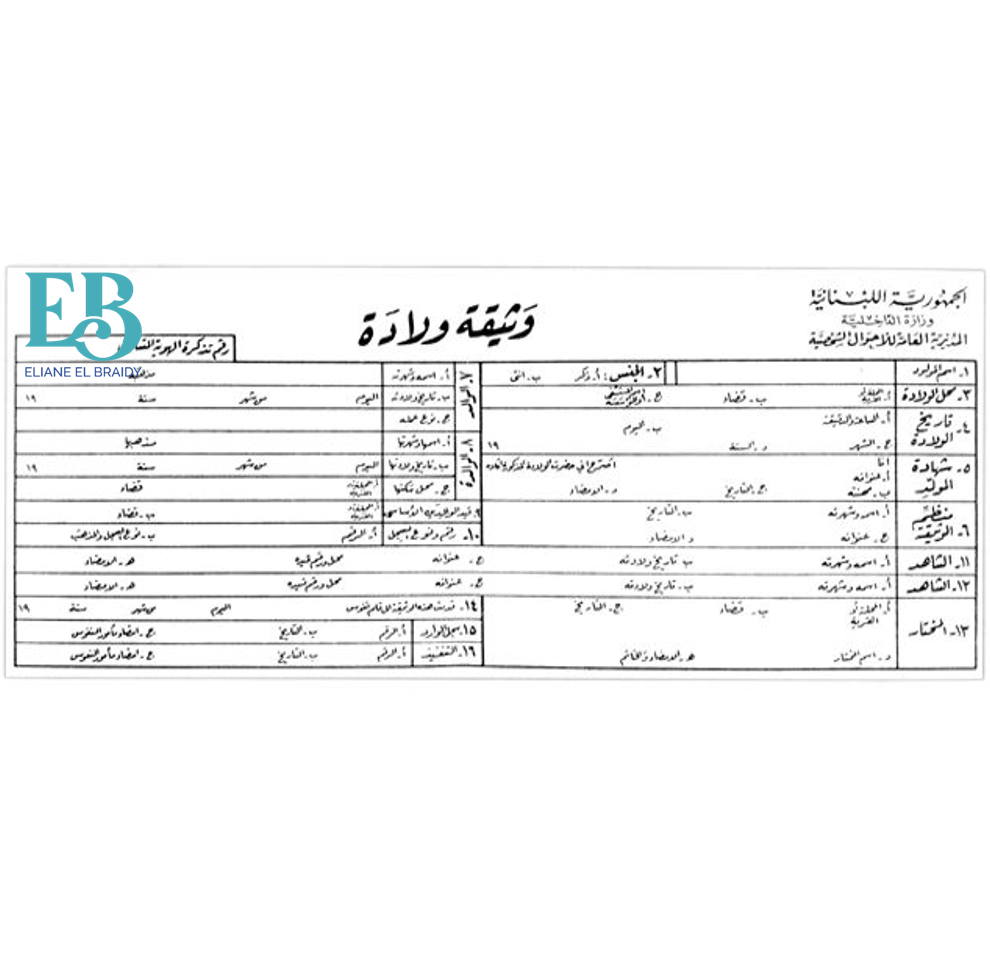 EB
ELIANE EL BRAIDY
الجمهورية اللبنانية
وزارة الداخلية
المديرية العامة للاحوال الشخصية
وثيقة ولادة
رقم تذكرة الهوية
١. اسم المولود
٢. الجنس: أ. ذكر ب. انثى
٣. محل الولادة أ. المحلة او القرية ب. قضاء ج.
٤. تاريخ الولادة أ. الساعة والدقيقة ب. اليوم
ج. الشهر د. السنة ١٩
٥. شهادة المولد انا
أ. عنوانه اصرح اني حضرت الولادة المذكورة اعلاه
ب. مهنته ج. التاريخ د. الامضاء
٦. منظم الوثيقة أ. اسمه وشهرته ب. التاريخ
ج. عنوانه د. الامضاء
٧. الوالد أ. اسمه وشهرته مذهبه
ب. تاريخ ولادته اليوم من شهر سنة ١٩
ج. نوع عمله
٨. الوالدة أ. اسمها وشهرتها مذهبها
ب. تاريخ ولادتها اليوم من شهر سنة ١٩
ج. محل سكنها أ. المحلة او القرية قضاء
٩. قيد الوالدين الأساسي أ. المحلة او القرية ب. قضاء
١٠. رقم ونوع السجل أ. الرقم ب. نوع السجل والمذهب
١١. الشاهد أ. اسمه وشهرته ب. تاريخ ولادته ج. عنوانه محل ورقم قيده هـ. الامضاء
١٢. الشاهد أ. اسمه وشهرته ب. تاريخ ولادته ج. عنوانه محل ورقم قيده هـ. الامضاء
١٣. المختار أ. المحلة او القرية ب. قضاء ج. التاريخ
د. اسم المختار هـ. الامضاء والخاتم
١٤. قدمت هذه الوثيقة الى قلم نفوس اليوم من شهر سنة ١٩
١٥. سجل الوارد أ. الرقم ب. التاريخ ج. امضاء مأمور النفوس
١٦. التنفيذ أ. الرقم ب. التاريخ ج. امضاء مأمور النفوس